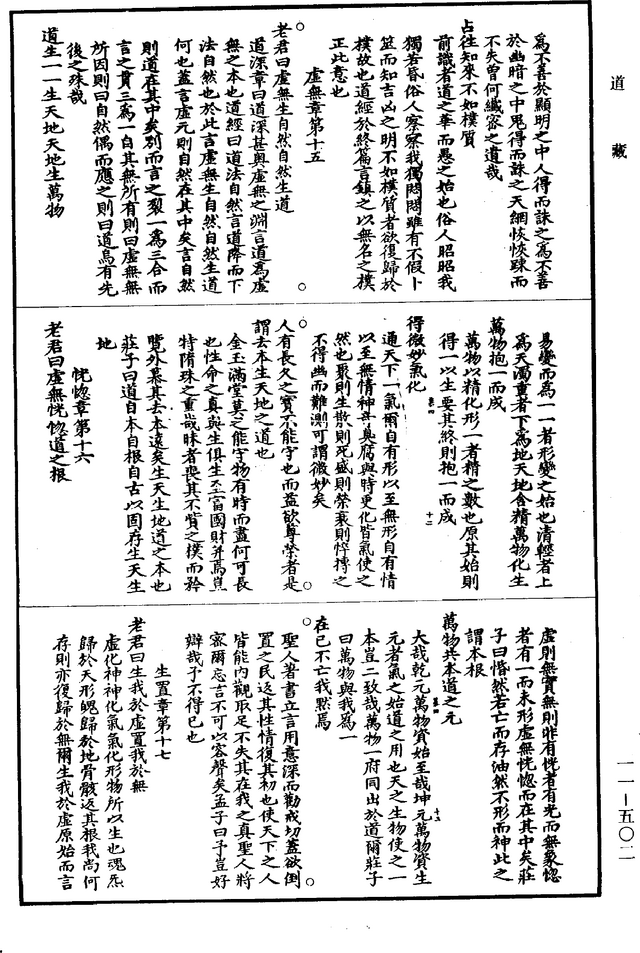 道藏
為不善於顯明之中人得而誅之為不善
於幽暗之中鬼得而誅之天網恢恢踈而
不失曾何纖密之遺哉
占徃知來不如樸質
前識者道之華而愚之始也俗人昭昭我
獨若昏俗人察察我獨悶悶雖有不假卜
筮而知吉凶之明不如樸質者欲復歸於
樸故也道經於終篇言鎮之以無名之樸
正此意也
虛無章第十五
老君曰虛無生自然自然生道
道深章曰道深甚奧虛無之淵言道為虛
無之本也道經曰道法自然言道降而下
法自然也於此言虛無生自然自然生道
何也蓋言虛无則自然在其中矣言自然
則道在其中矣別而言之裂一為三合而
言之貫三為一自其無所有則曰虛無無
所因則曰自然偶而應之則曰道烏有先
後之殊哉
道生一一生天地天地生萬物
易變而為一一者形變之始也清輕者上
為天濁重者下為地天地含精萬物化生
萬物抱一而成
萬物以精化形一者精之數也原其始則
得一以生要其終則抱一而成
得微妙氣化
通天下一氣爾自有形以至無形自有情
以至無情神奇臭腐與時更化皆氣使之
然也聚則生散則死盛則榮衰則悴摶之
不得幽而難測可謂微妙矣
人有長久之寶不能守也而益欲尊榮者是
謂去本生天地之道也
金玉滿堂莫之能守物有時而盡何可長
也性命之真與生俱生至富國財并焉豈
特隋珠之重哉昧者喪其不貲之樸而矜
覽外慕其去本遠矣生天生地道之本也
莊子曰道自本自根自古以固存生天生
地
恍惚章第十六
老君曰虛無恍惚道之根
虛則無實無則非有恍者有光而無象惚
者有一而未形虛無恍惚而在其中矣莊
子曰惛然若亡而存油然不形而神此之
謂本根
萬物共本道之元
大哉乾元萬物資始至哉坤元萬物資生
元者氣之始道之用也天之生物使之一
本豈二致哉萬物一府同出於道爾莊子
曰萬物與我為一
在己不亡我默焉
聖人著書立言用意深而勸戒切蓋欲倒
置之民返其性情復其初也使天下之人
皆能內觀取足不失其在我之真聖人將
密爾忘言不可以容聲矣孟子曰予豈好
辯哉予不得已也
生置章第十七
老君曰生我於虛置我於無
虛化神神化氣氣化形物所以生也魂炁
歸於天形魄歸於地骨骸返其根我尚何
存則亦復歸於無爾生我於虛原始而言
一一—五〇二